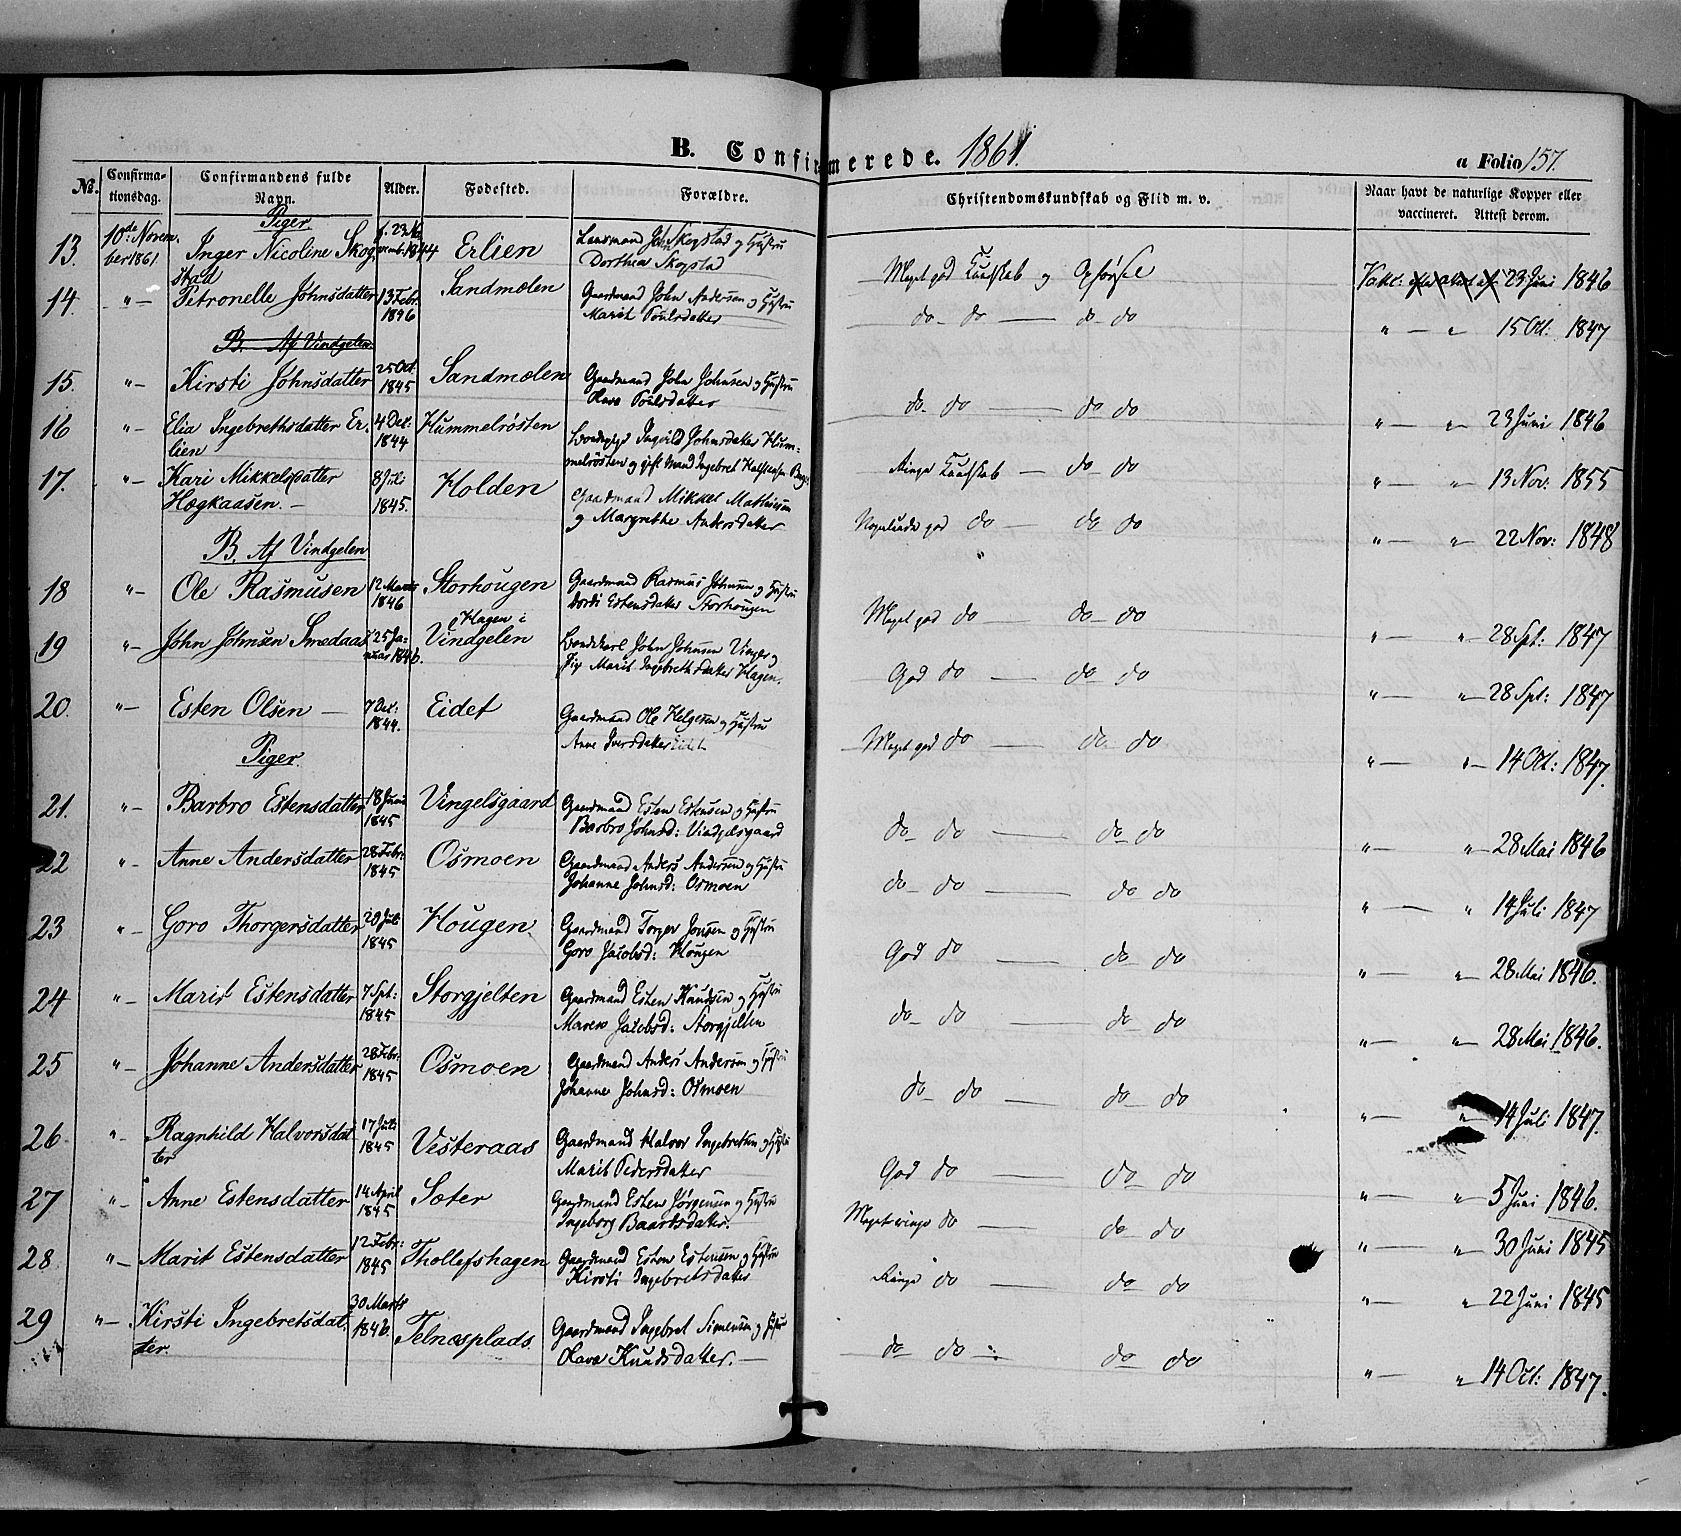 B. Confirmerede. 1861. a Folio 157.
No. Confirmationsdag. Confirmandens fulde Navn. Alder. Fødested. Forældre. Christendomskundskab og Flid m. v. Naar havt de naturlige Kopper eller vaccineret. Attest derom.
Piger
13. 10de Novem- f. 23 No-
ber 1861. Inger Nicoline Skog- vemb. 1844 Erlien Lensmand John Skogstad og Hustru
stad Dorthea Skogstad Meget god Kundskab og Opførsel Vakc: 23 Juni 1846
14. " — Petronelle Johnsdatter 13 Febr. 1846 Sandmælen Gaardmand John Andersen og Hustru
Marit Poulsdatter do – do — do – do " — " 15 Oct: 1847
B. Af Vindgelen
15. " — Kirsti Johnsdatter 25 Oct. 1845 Sandmælen Gaardmand John Johnsen og Hustru
Olava Poulsdatter do – do — do do " — " 23 Juni 1846
16 " — Elia Ingebrethsdatter Er- 4 Dec. 1844 Hummelrösten Ingrild Johnsdatter Hum-
lien melrösten og gift Mand Ingebret Ringe Kundskab — do – do " — " 13 Nov: 1855
17. " — Kari Mikkelsdatter 8 Juli 1845. Holden Gaardmand Mikkel Mathiesen
Hægkaasen. — og Margrethe Andersdatter Nogenlunde god do — do do " — " 22 Nov: 1848
B. Af Vindgelen
18 " — Ole Rasmusen 12 Marts 1846 Storhougen Gaardmand Rasmus Johnsen og Hustru
Dordi Estensdatter Storhougen Meget god do — do – do " — " 28 Spt: 1847
Hagen i
19 " — John Johnsen Smedaas 25 Ja-
nuar 1846. Vindgelen John Johnsen Vinger og
Pige Marit Ingebrethsdatter Hagen. God do — do – do " — " 28 Spt: 1847
20. " — Esten Olsen — 7 Dec: 1844. Eidet Gaardmand Ole Helgesen og Hustru
Anne Iversdatter Eidet Meget god do — do – do " — " 14 Oct: 1847.
Piger
21. " — Barbro Estensdatter 18 Juni 1845 Vingelsgaard Gaardmand Esten Estensen og Hustru
Barbro Johnsd: Vindgelsgaard do – do — do – do " — " 28 Mai 1846
22 " — Anne Andersdatter 28 Febr: 1845 Osmoen Gaardmand Anders Andersen og Hustru
Johanne Johnsd: Osmoen do – do — do do " — " 14 Juli 1847
23 " — Goro Thorgersdatter 20 Juli 1845 Hougen Gaardmand Torger Jonsen og Hustru
Goro Jacobsd: Hougen God do — do – do " — " 28 Mai 1846.
24 " — Marit Estensdatter 7 Spt: 1845 Storgjelten Gaardmand Esten Knudsen og Hustru
Maren Jacobsd: Storgjelten do – do — do – do " — " 28 Mai 1846.
25 " — Johanne Andersdatter 28 Febr: 1845 Osmoen Gaardmand Anders Andersen og Hustru
Johanne Johnsd: Osmoen do – do — do – do " — " 14 Juli 1847.
26 " — Ragnhild Halvorsdat- 17 Juli 1845 Vesteraas Gaardmand Halvor Ingebretsen og Hustru
ter Marit Pedersdatter God do — do – do " — " 5 Juni 1846.
27 " — Anne Estensdatter 14 April 1845 Sæter Gaardmand Esten Jørgensen og Hustru
Ingeborg Baardsdatter. Meget ringe do — do – do " — " 30 Juni 1845
28 " — Marit Estensdatter 12 Febr: 1845 Thollefshagen Gaardmand Esten Estensen og Hustru
Kirsti Ingebretsdatter Ringe do — do – do " — " 22 Juni 1845
29 " — Kirsti Ingebretsdat- 30 Marts 1846. Telnæsplads. Gaardmand Ingebret Simensen og Hustru
ter. Olava Knudsdatter. — do – do — do – do " — " 14 Oct: 1847.